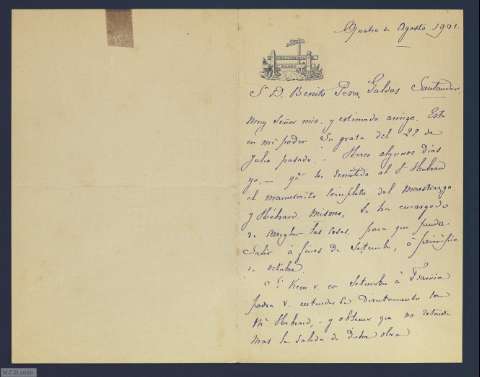 Agosto 1901.
S. D. Benito Perez Galdos Santander
Muy Señor mio y estimado amigo. Esta
en mi poder Su grata del 29 de
Julio pasado. Hace algunos dias
ya he remitido al Sr Hubard
el manuscrito completo del
y Hubard mismo, se ha encargado
de las cosas, para que pueda
Salir á fines de Setembre, ó principio
de octubre.
Si Viene V. en Setembre á Francia
podra V. entenderse Directamente con
Mr Hubard, y obtener que no retarde
mas la Salida de Dicha obra